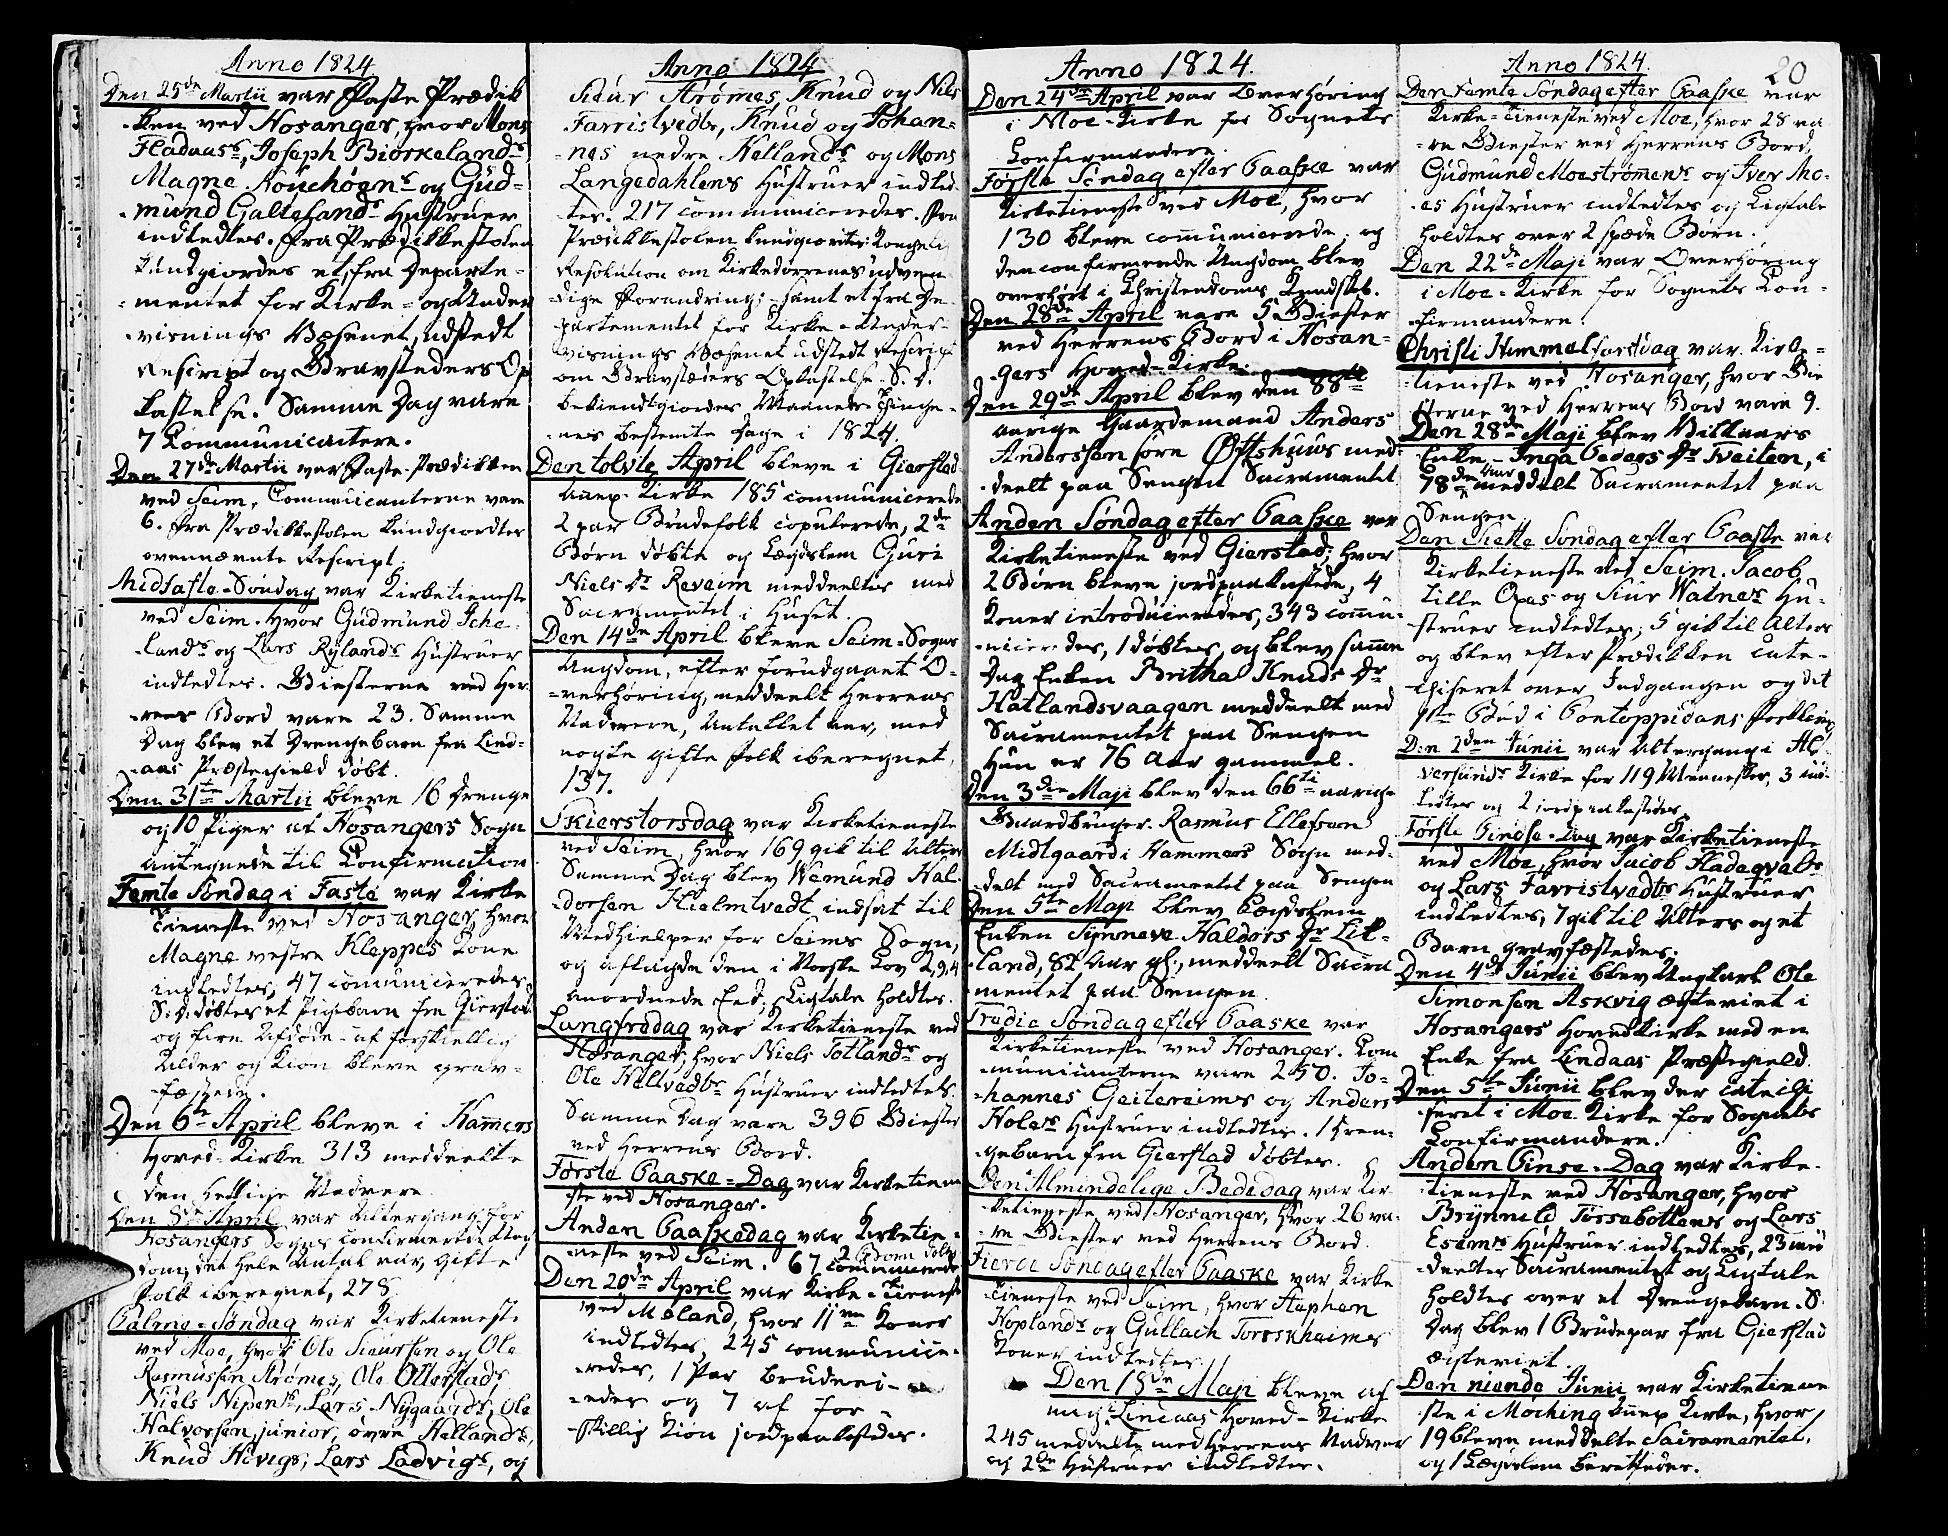 Anno 1824
Den 25de Martii var Faste Prædik
ken ved Hosanger, hvor Mons
Fladaas's, Joseph Biørkelands
Magne Houehøgns og Gud-
mund Galtesands Hustruer
indledtes. Fra Prædikkestolen
kundgiordes et, fra Departe-
mentet for Kirke- og Under
visnings Væsenet, udstedt
Rescript og Gravsteders Op
kastelse. Samme Dag vare
7 Communicantere.
Den 27de Martii var Faste-Prædikken
ved Seim. Communicanterne vare
6. Fra Prædikkestolen kundgiordtes
ovennævnte Rescript.
Midfaste-Søndag var Kirketieneste
ved Seim. hvor Gudmund Iche-
lands og Lars Rylands Hustruer
indledtes. Giesterne ved Her-
rens Bord vare 23. Samme
Dag blev et Drengebarn fra Lind-
aas Præstegield døbt.
Den 31te Martii bleve 16 Drenge
og 10 Piger af Hosangers Sogn
antegnede til Confirmation
Femte Søndag i Faste var Kirke
Tieneste ved Hosanger, hvor
Magne vestre Kleppes Kone
indledtes, 47 communiceredes
S. D. døbtes et Pigebarn fra Gierstad
og fire Afdøde af forskiellig
Alder og Kiøn bleve grav-
fæstede.
Den 6te April bleve i Hammers
Hoved-Kirke 313 meddeelte
den hellige Nadvere.
Den 8de April var Altergang for
Hosangers Sogns confirmerede Ung
dom, det hele Antal var, gifte
Folk iberegnet, 278.
Palme-Søndag var Kirketieneste
ved Moe, hvor Ole Siurssen og Ole
Rasmussen Strømes, Ole Otterstads
Niels Nipens, Lars Nygaards, Ole
Halvorsen junior, øvre Hellands,
Knud Hivigs, Lars Ladvigs, og
Anno 1824
Siur Strømes, Knud og Nils
Farristvedts, Knud og Johan-
nes nedre Hellands og Mons
Langedahlens Hustruer indled
tes. 217 communiceredes. Fra
Prædikkestolen kundgiordtes Kongelig
Resolution om Kirkedørrenes udven
dige Forandring; samt et fra De-
partementet for Kirke-Under-
visnings Væsenet udstedt Rescript
om Gravstæders Opkastelse. S. D.
bekiendtgiordes Maaneds-Tinge-
nes bestemte Dage i 1824.
Den tolvte April bleve i Gierstad
Annex-Kirke 185 communicerede
2 par Brudefolk copulerede, 2de
Børn døbte og Lægdslem Guri
Niels Dr Reveim meddeeltes med
Sacramentet i Huset.
Den 14de April bleve Seim-Sogns
Ungdom, efter forudgaaet O-
verhøring, meddeelt Herrens
Nadvere, Antallet var, med
nogle gifte Folk iberegnet,
137.
Skierstorsdag var Kirketieneste
ved Seim, hvor 169 gik til Alters
Samme Dag blev Wemund Hal-
dorsen Hielmtvedt indsat til
Medhielper for Seims Sogn,
og aflagde den i Norske Lov 2,9,4
anordnede Eed; Ligtale holdtes.
Langfredag var Kirketieneste ved
Hosanger, hvor Niels Totlands og
Ole Heltvedts Hustruer indledtes.
Samme Dag vare 396 Giester
ved Herrens Bord.
Første Paaske-Dag var Kirketiene
ste ved Hosanger.
Anden Paaskedag var Kirketie-
neste ved Seim. 67 communicerede
2 Børn døbt
Den 20de April var Kirke-Tieneste
ved Meland, hvor 11ve Koner
indledtes, 245 communice-
redes, 1 Par brudevi-
edes og 7 af for-
skiellig Kiøn jordpaakastedes.
Anno 1824.
Den 24de April var Overhøring
i Moe-Kirke for Sognets
Confirmandere.
Første Søndag efter Paaske var
Kirketieneste ved Moe, hvor
130 bleve communicerede, og
den confirmerede Ungdom blev
overhørt i Christendoms Kundskab.
Den 28de April vare 5 Giester
ved Herrens Bord i Hosan-
gers Hoved-Kirke.
Den 29de April blev den 88de
aarige Gaardemand Anders
Anderssen søre Øftshuus med-
deelt paa Sengen Sacramentet
Anden Søndag efter Paaske var
Kirketieneste ved Gierstad; hvor
2 Børn bleve jordpaakastede, 4
Koner introduceredes, 343 commu-
niceredes, 1 døbtes, og blev samme
Dag Enken Britha Knuds Dr
Hatlandsvaagen meddeelt med
Sacramentet paa Sengen
Hun er 76 Aar gammel.
Den 3die Maji blev den 66ti aarige
Gaardbruger Rasmus Ellefsen
Midtgaard i Hammers Sogn med-
delt med Sacramentet paa Sengen
Den 5te Maji blev Lægdslem
Enken Synneve Haldors Dr Lil-
land, 82 Aar gl., meddeelt Sacra
mentet paa Sengen.
Tredie Søndag efter Paaske var
Kirketieneste ved Hosanger. Com
municanterne vare 250. Jo-
hannes Geitereims og Anders
Holes Hustruer indledtes. 1 Dren-
gebarn fra Gierstad døbtes.
Den Almindelige Bededag var Kir-
ketieneste ved Hosanger, hvor 26 va-
re Giester ved Herrens Bord.
Fierde Søndag efter Paaske var Kirke
Tieneste ved Seim, hvor Stephen
Hoplands og Gullach Torsskhaimes
Koner indledtes.
Den 18de Maji bleve af
mig i Lindaas Hoved-Kirke
245 meddeelte med Herrens Nadver
og 2de Hustruer indledtes.
Anno 1824.
20
Den Femte Søndag efter Paaske var
Kirke-Tieneste ved Moe, hvor 28 va
re Giester ved Herrens Bord,
Gudmund Moestrømens og Iver Mo-
es Hustruer indledtes og Ligtale
holdtes over 2 spæde Børn.
Den 22de Maji var Overhøring
i Moe-Kirke for Sognets Con-
firmandere.
Christi Himmelfartsdag var Kirke-
tieneste ved Hosanger, hvor Gie
sterne ved Herrens Bord vare 9.
Den 28de Maji blev Vilkaars
Enke-Inga Peders Dr Tveiten, i
78de Aar meddelt Sacramentet paa
Sengen
Den Siette Søndag efter Paaske var
Kirketieneste ved Seim. Jacob
Lille Opes og Siur Watnes Hu-
struer indledtes; 5 gik til Alters
og blev efter Prædikken cate-
chiseret over Indgangen og det
1ste Bud i Pontoppidans Forklaring
Den 2den Junii var Altergang i Al-
versunds Kirke for 119 Mennesker, 3 ind-
ledtes og 2 jordpaakastedes
Første Pindse-Dag var Kirketieneste
ved Moe, hvor Jacob Fladeqvals
og Lars Farristvedts Hustruer
indledtes, 7 gik til Alters og et
Barn gravfæstedes.
Den 4de Junii blev Ungkarl Ole
Simonsen Askvig ægteviet i
Hosangers Hovedkirke med en
Enke fra Lindaas Præstegield.
Den 5te Junii blev der catechi
seret i Moe Kirke for Sognets
Confirmandere.
Anden Pinse-Dag var Kirke-
tieneste ved Hosanger, hvor
Brynnild Torsebottens og Lars
Esems Hustruer indledtes, 23 med
deeltes Sacramentet og Ligtale
holdtes over et Drengebarn. S.
Dag blev 1 Brudepar fra Gierstad
ægteviet.
Den niende Junii var Kirketiene
ste i Moching Annex Kirke, hvor
19 bleve meddelte Sacramentet,
og 1 Lægdslem berettedes.